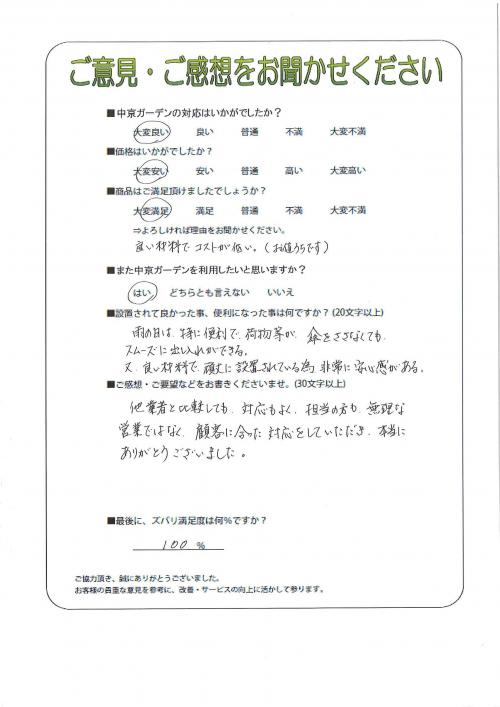 ご意見・ご感想をお聞かせください
■中京ガーデンの対応はいかがでしたか？
大変良い 良い 普通 不満 大変不満
■価格はいかがでしたか？
大変安い 安い 普通 高い 大変高い
■商品はご満足頂けましたでしょうか？
大変満足 満足 普通 不満 大変不満
⇒よろしければ理由をお聞かせください。
良い材料でコストが低い。(お値うちです)
■また中京ガーデンを利用したいと思いますか？
はい どちらとも言えない いいえ
■設置されて良かった事、便利になった事は何ですか？(20文字以上)
雨の日は、特に便利で、荷物等が、傘をささなくても、
スムーズに出し入れができる。
又、良い材料で、頑丈に設置されている為、非常に安心感がある。
■ご感想・ご要望などをお書きくださいませ。(30文字以上)
他業者と比較しても、対応もよく、担当の方も、無理な
営業ではなく、顧客に合った対応をしていただき、本当に
ありがとうございました。
■最後に、ズバリ満足度は何％ですか？
100 %
ご協力頂き、誠にありがとうございました。
お客様の貴重な意見を参考に、改善・サービスの向上に活かして参ります。